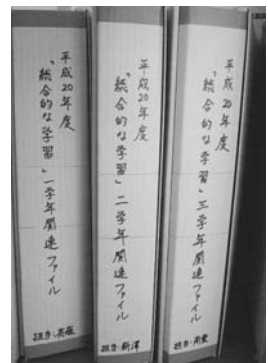 平成20年度
"総合的な学習"一学年関連ファイル
担当:斉藤
平成20年度
"総合的な学習"二学年関連ファイル
担当:新澤
平成20年度
"総合的な学習"三学年関連ファイル
担当: